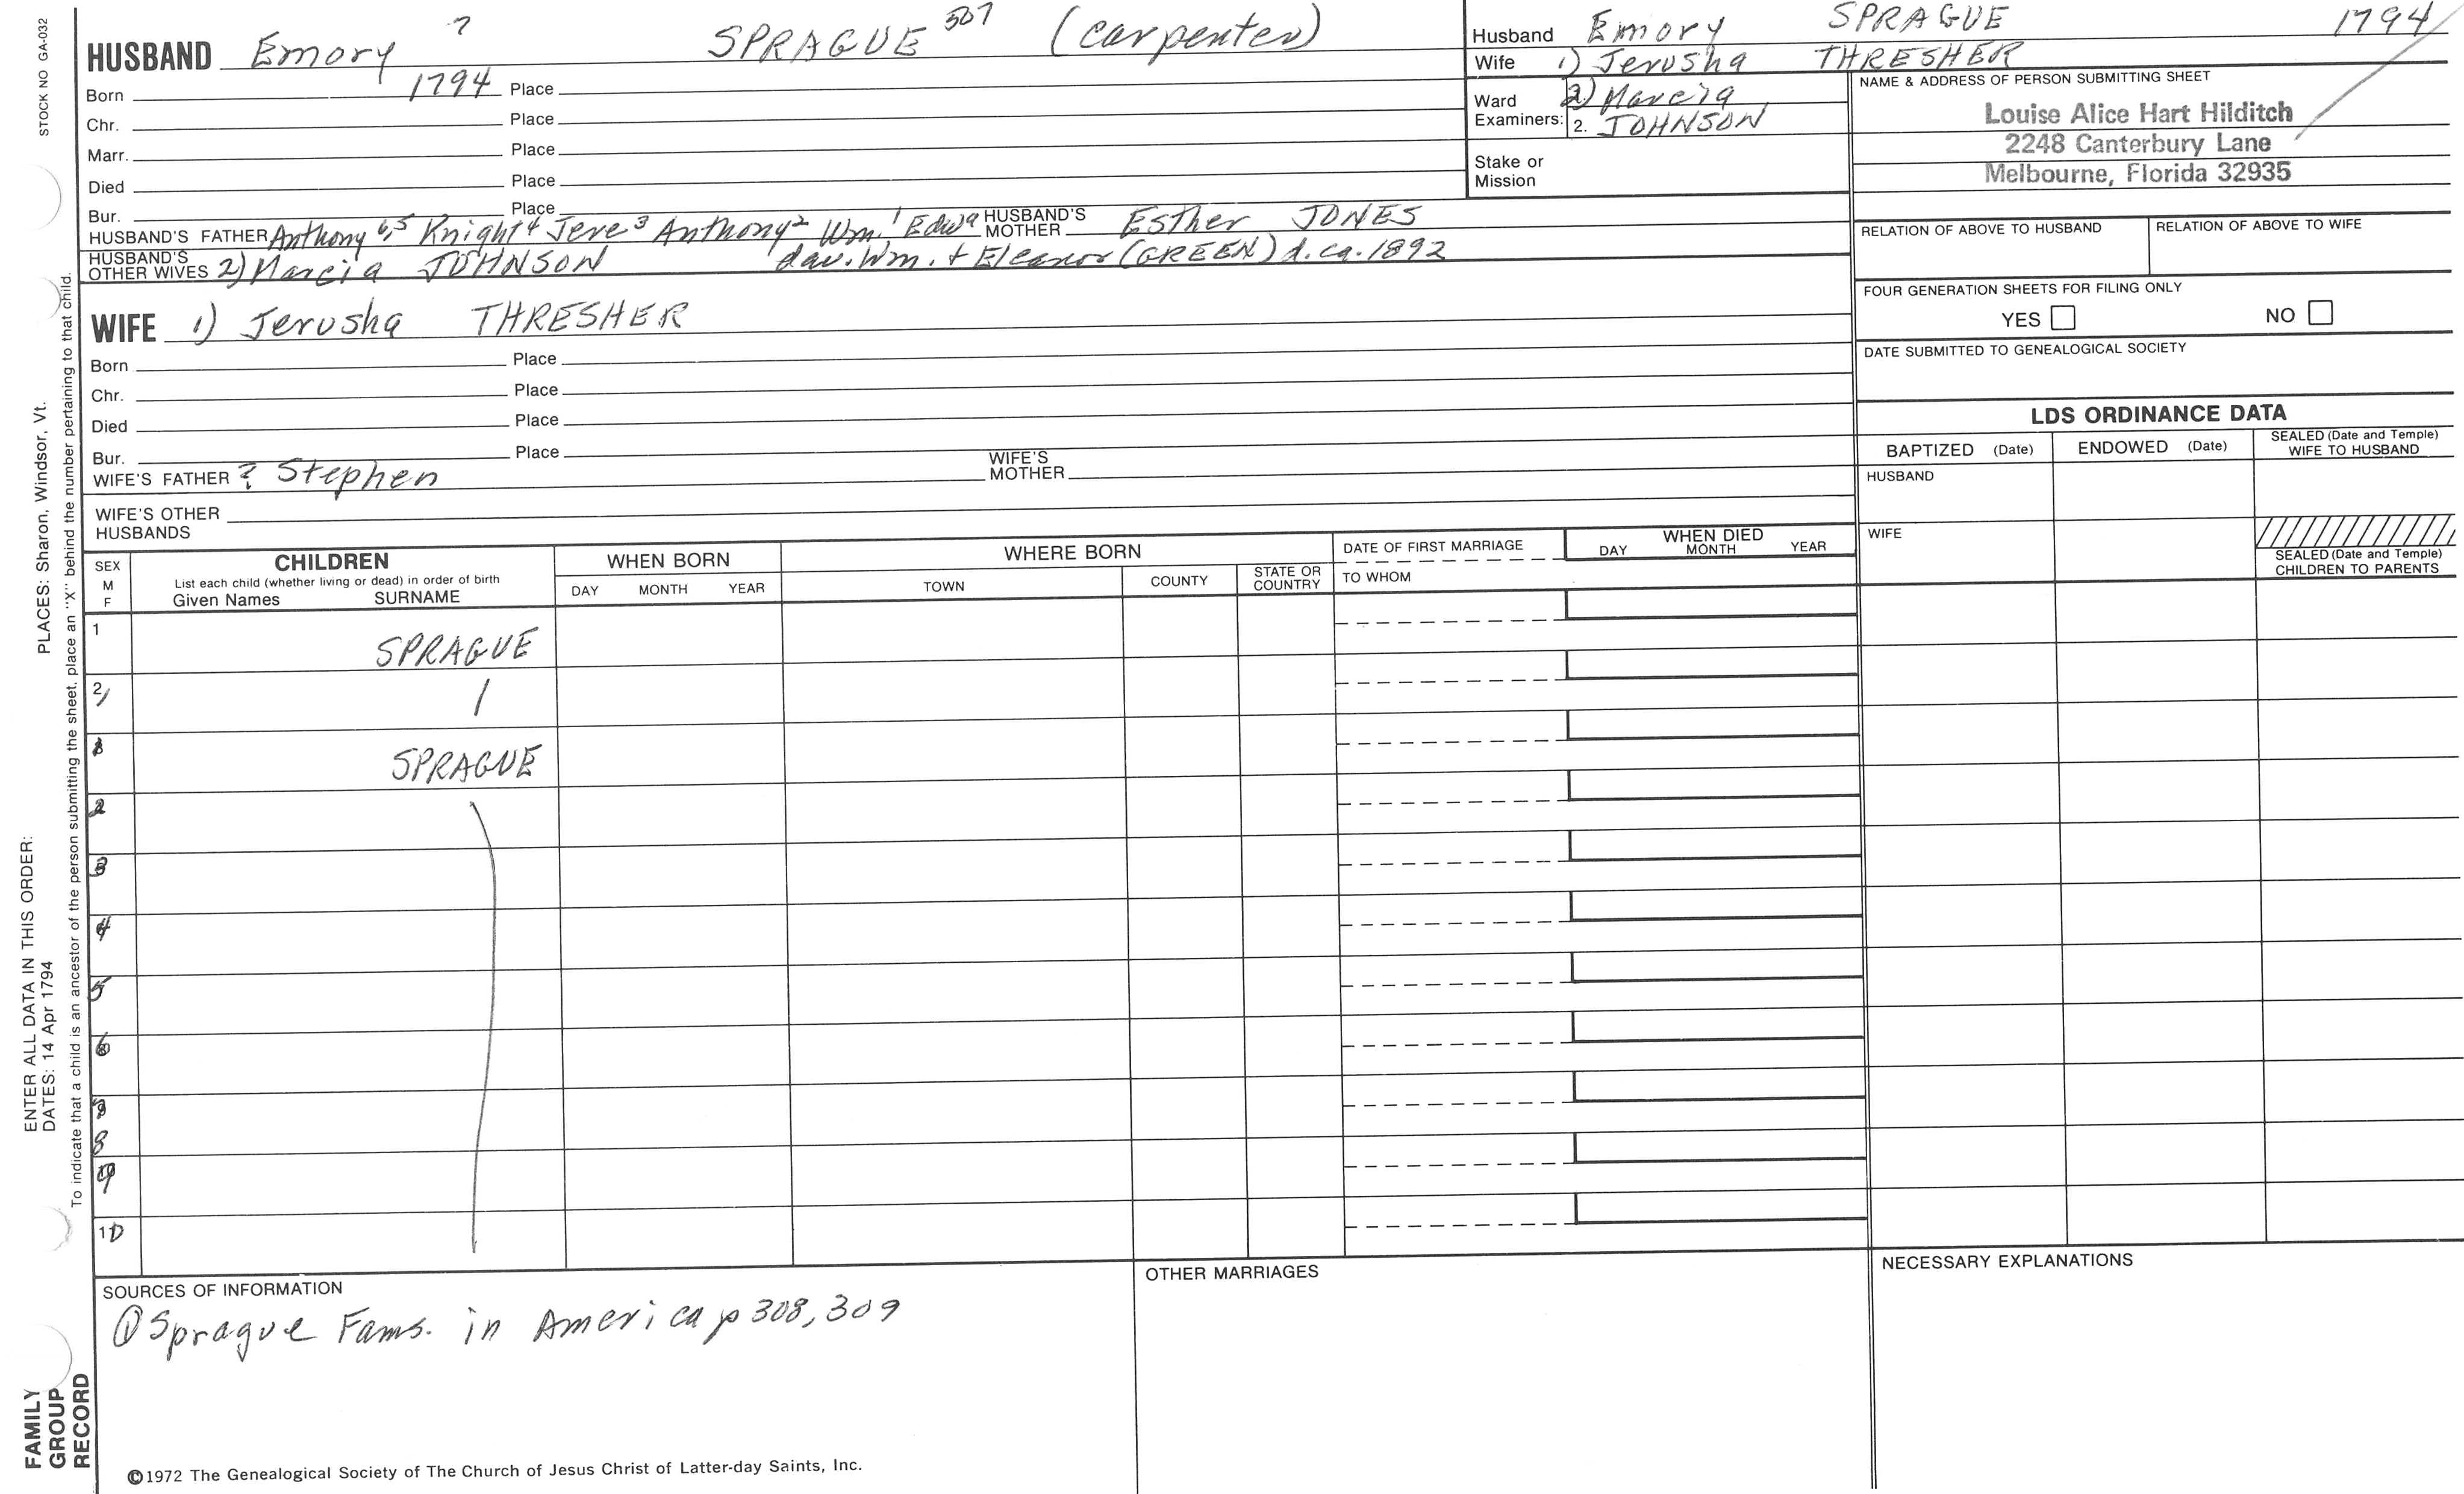 STOCK NO GA-032
HUSBAND Emory ? SPRAGUE 507 (carpenter)
Born 1794 Place
Chr. Place
Marr. Place
Died Place
Bur. Place
HUSBAND'S FATHER Anthony 6,5 Knight4 Jere3 Anthony2 Wm.1 Edwd HUSBAND'S MOTHER Esther JONES
HUSBAND'S OTHER WIVES 2) Marcia JOHNSON dau. Wm. + Eleanor (GREEN) d. ca. 1892
WIFE 1) Jerusha THRESHER
Born Place
Chr. Place
Died Place
Bur. Place
WIFE'S FATHER ? Stephen WIFE'S MOTHER
WIFE'S OTHER HUSBANDS
Husband Emory SPRAGUE 1794
Wife 1) Jerusha THRESHER
Ward 2) Marcia
Examiners: 2. JOHNSON
Stake or
Mission
NAME & ADDRESS OF PERSON SUBMITTING SHEET
Louise Alice Hart Hilditch
2248 Canterbury Lane
Melbourne, Florida 32935
RELATION OF ABOVE TO HUSBAND RELATION OF ABOVE TO WIFE
FOUR GENERATION SHEETS FOR FILING ONLY
YES NO
DATE SUBMITTED TO GENEALOGICAL SOCIETY
LDS ORDINANCE DATA
BAPTIZED (Date) ENDOWED (Date) SEALED (Date and Temple) WIFE TO HUSBAND
HUSBAND
WIFE
SEALED (Date and Temple)
CHILDREN TO PARENTS
SEX
M
F
CHILDREN
List each child (whether living or dead) in order of birth
Given Names SURNAME
WHEN BORN
DAY MONTH YEAR
WHERE BORN
TOWN COUNTY STATE OR COUNTRY
DATE OF FIRST MARRIAGE
TO WHOM
WHEN DIED
DAY MONTH YEAR
1 SPRAGUE
2
SPRAGUE
2
3
4
5
6
8
9
10
SOURCES OF INFORMATION
① Sprague Fams. in America p 308, 309
OTHER MARRIAGES
NECESSARY EXPLANATIONS
©1972 The Genealogical Society of The Church of Jesus Christ of Latter-day Saints, Inc.
FAMILY
GROUP
RECORD
ENTER ALL DATA IN THIS ORDER:
DATES: 14 Apr 1794
PLACES: Sharon, Windsor, Vt.
To indicate that a child is an ancestor of the person submitting the sheet, place an "X" behind the number pertaining to that child.